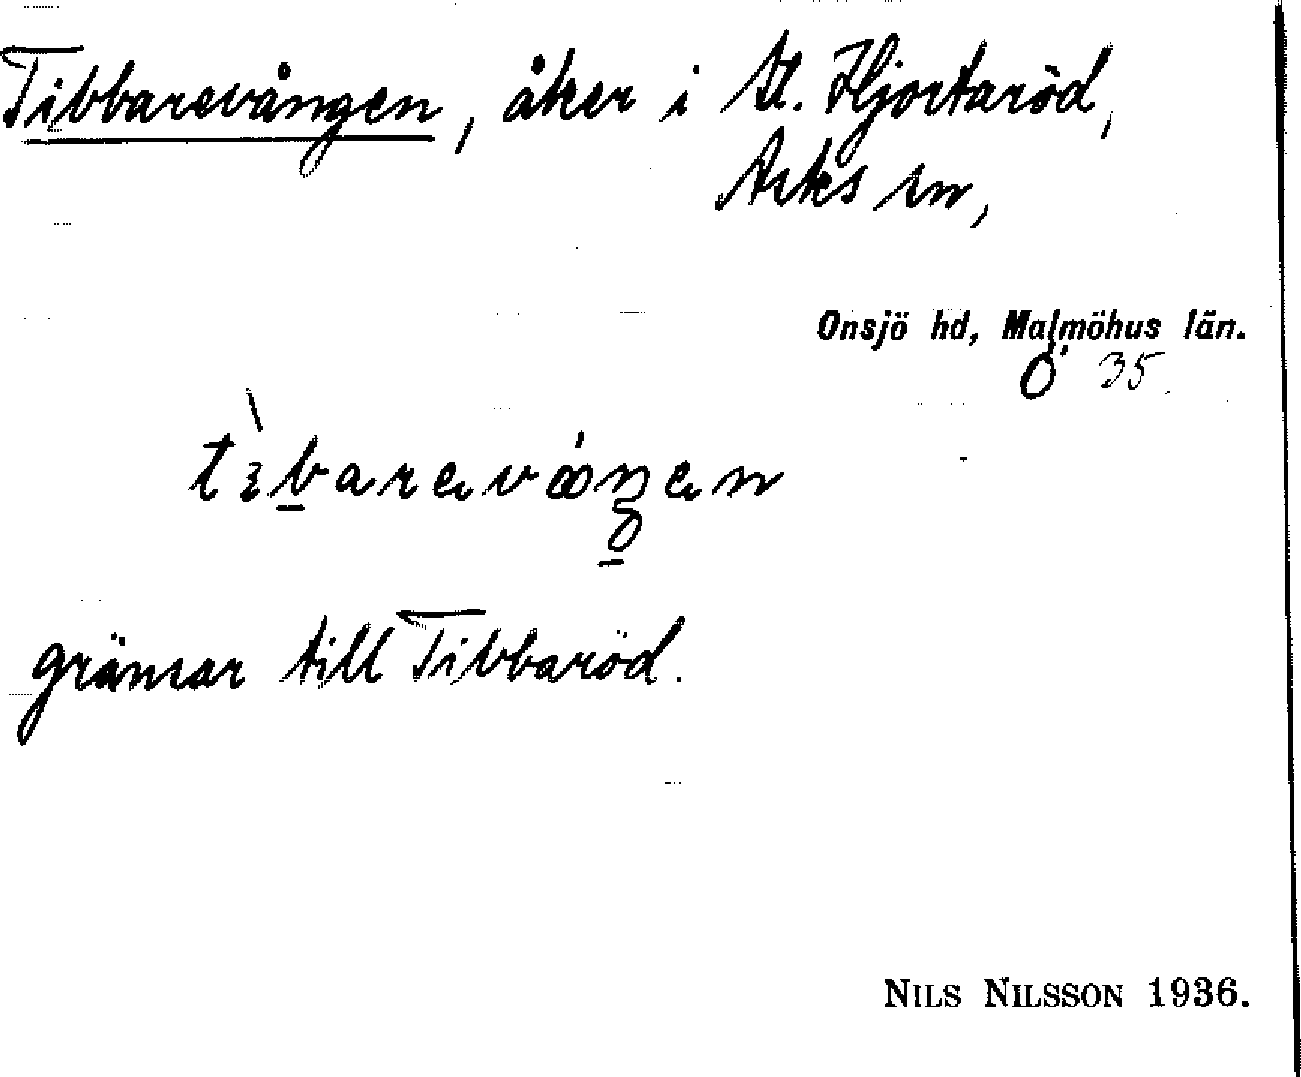 Tibbarevången, åker i St. Hjortaröd,
Asks sn,
Onsjö hd, Malmöhus län.
Ö 35.
gränsar till Tibbaröd.
NILS NILSSON 1936.